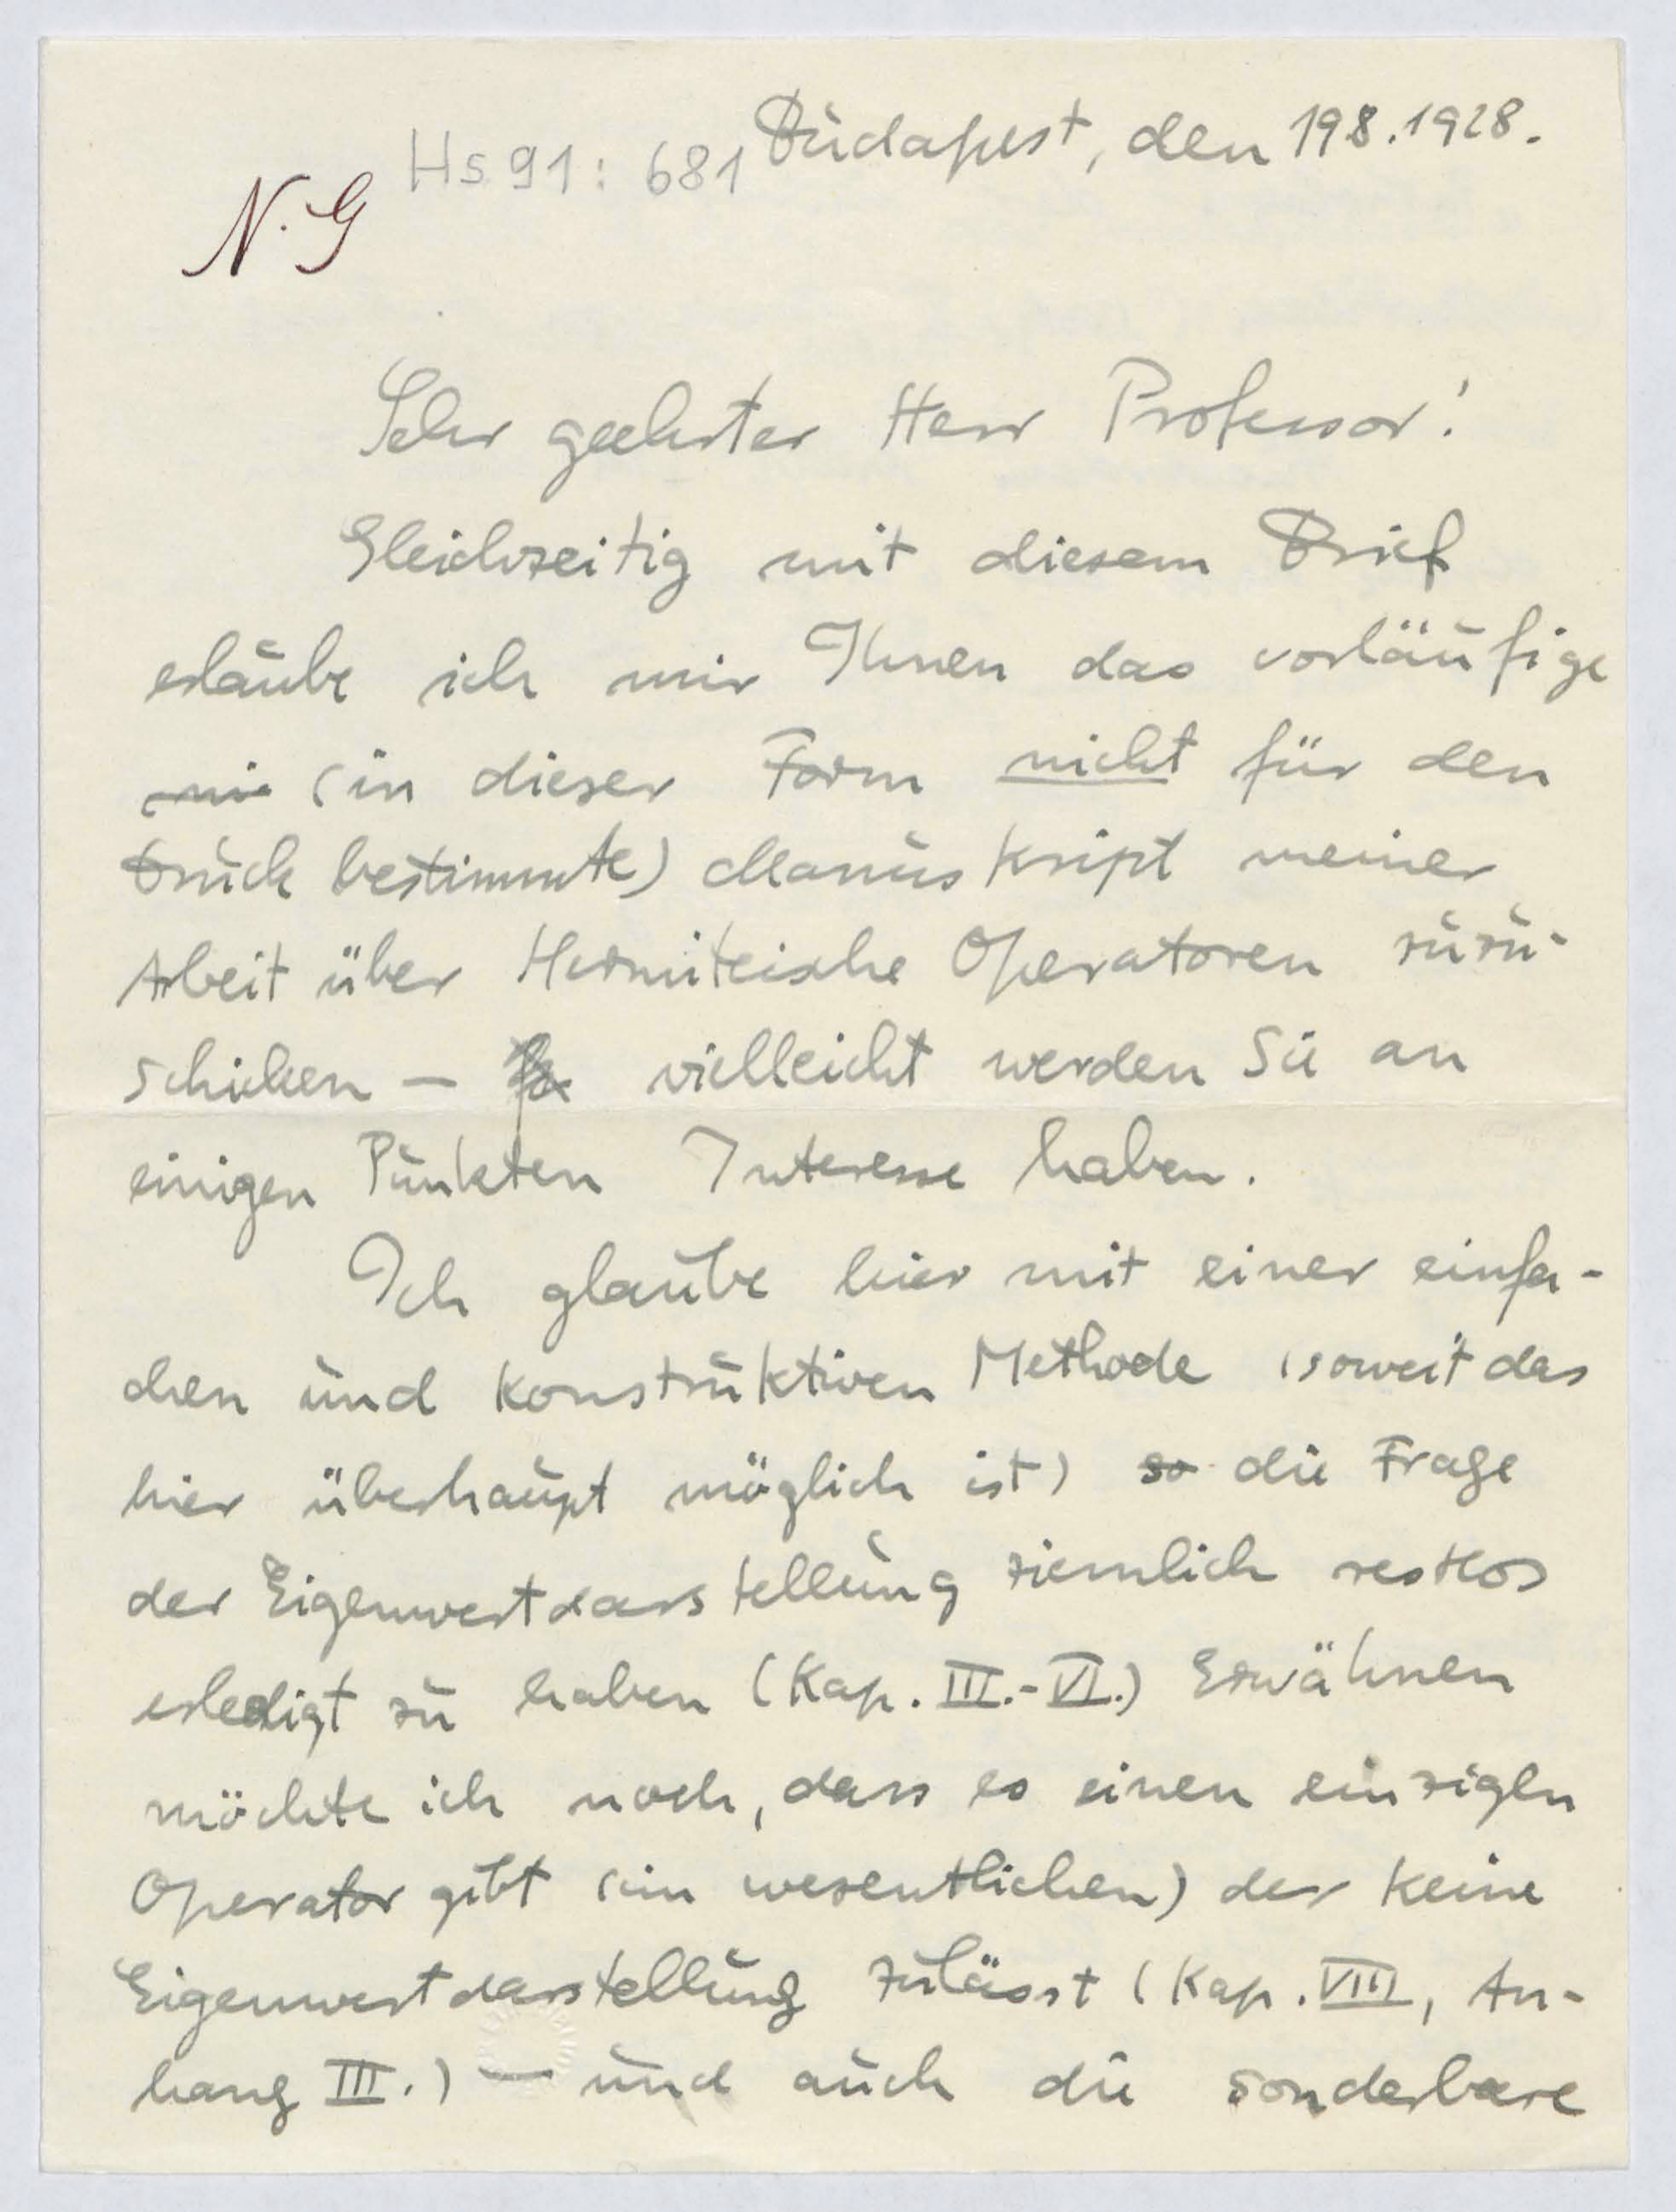 Hs 91: 681 Budapest, den 19.8.1928.
N.G
Sehr geehrter Herr Professor!
Gleichzeitig mit diesem Brief
erlaube ich mir Ihnen das vorläufige
(in dieser Form nicht für den
Druck bestimmte) Manuskript meiner
Arbeit über Hermiteische Operatoren zuzu-
schicken — vielleicht werden Sie an
einigen Punkten Interesse haben.
Ich glaube hier mit einer einfa-
chen und konstruktiven Methode (soweit das
hier überhaupt möglich ist) so die Frage
der Eigenwertdarstellung ziemlich restlos
erledigt zu haben (Kap. III.-VI.) Erwähnen
möchte ich noch, dass es einen einzigen
Operator gibt (im wesentlichen) der keine
Eigenwertdarstellung zulässt (Kap. VIII, An-
hang III.) — und auch die sonderbare